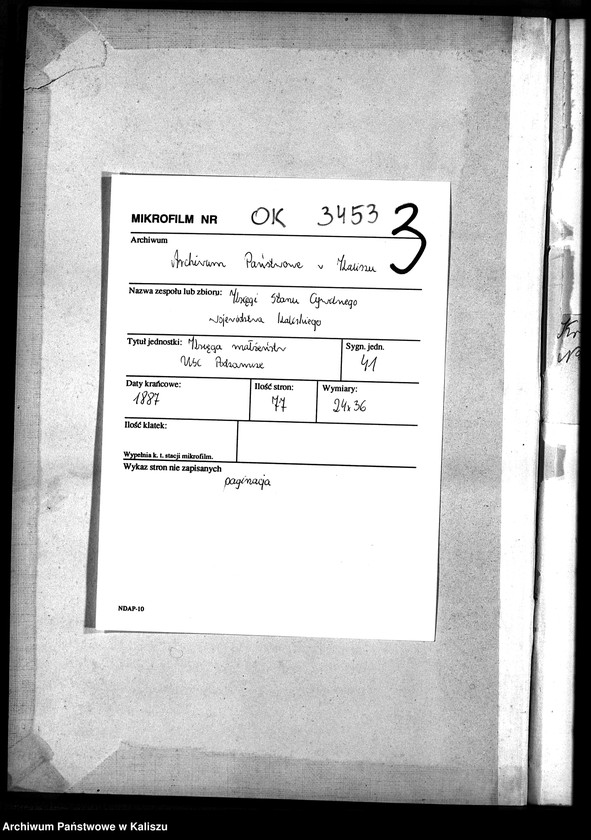 MIKROFILM NR OK 3453 3
Archiwum
Archiwum Państwowe w Kaliszu
Nazwa zespołu lub zbioru: Księgi Stanu Cywilnego
województwa Kaliskiego
Tytuł jednostki: Księga małżeństw
USC Podzamcze
Sygn. jedn.
41
Daty krańcowe:
1887
Ilość stron:
77
Wymiary:
24x36
Ilość klatek:
Wypełnia k. t. stacji mikrofilm.
Wykaz stron nie zapisanych
paginacja
NDAP-10
Archiwum Państwowe w Kaliszu